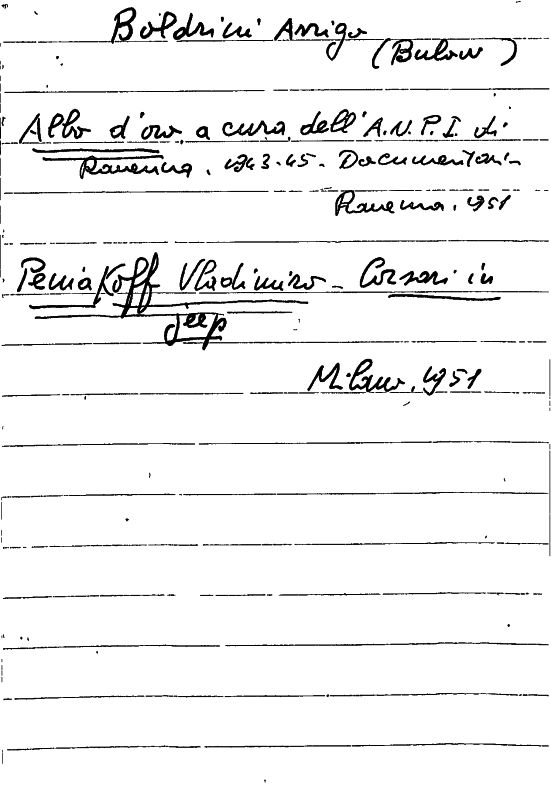 Boldrini Arrigo
(Bulow)
Albo d'oro, a cura dell'A.N.P.I. di
Ravenna. 1943-45. Documentari-
Ravenna. 1951
Peniakoff Vladimiro - Corsari in
jeep
Milano. 1951